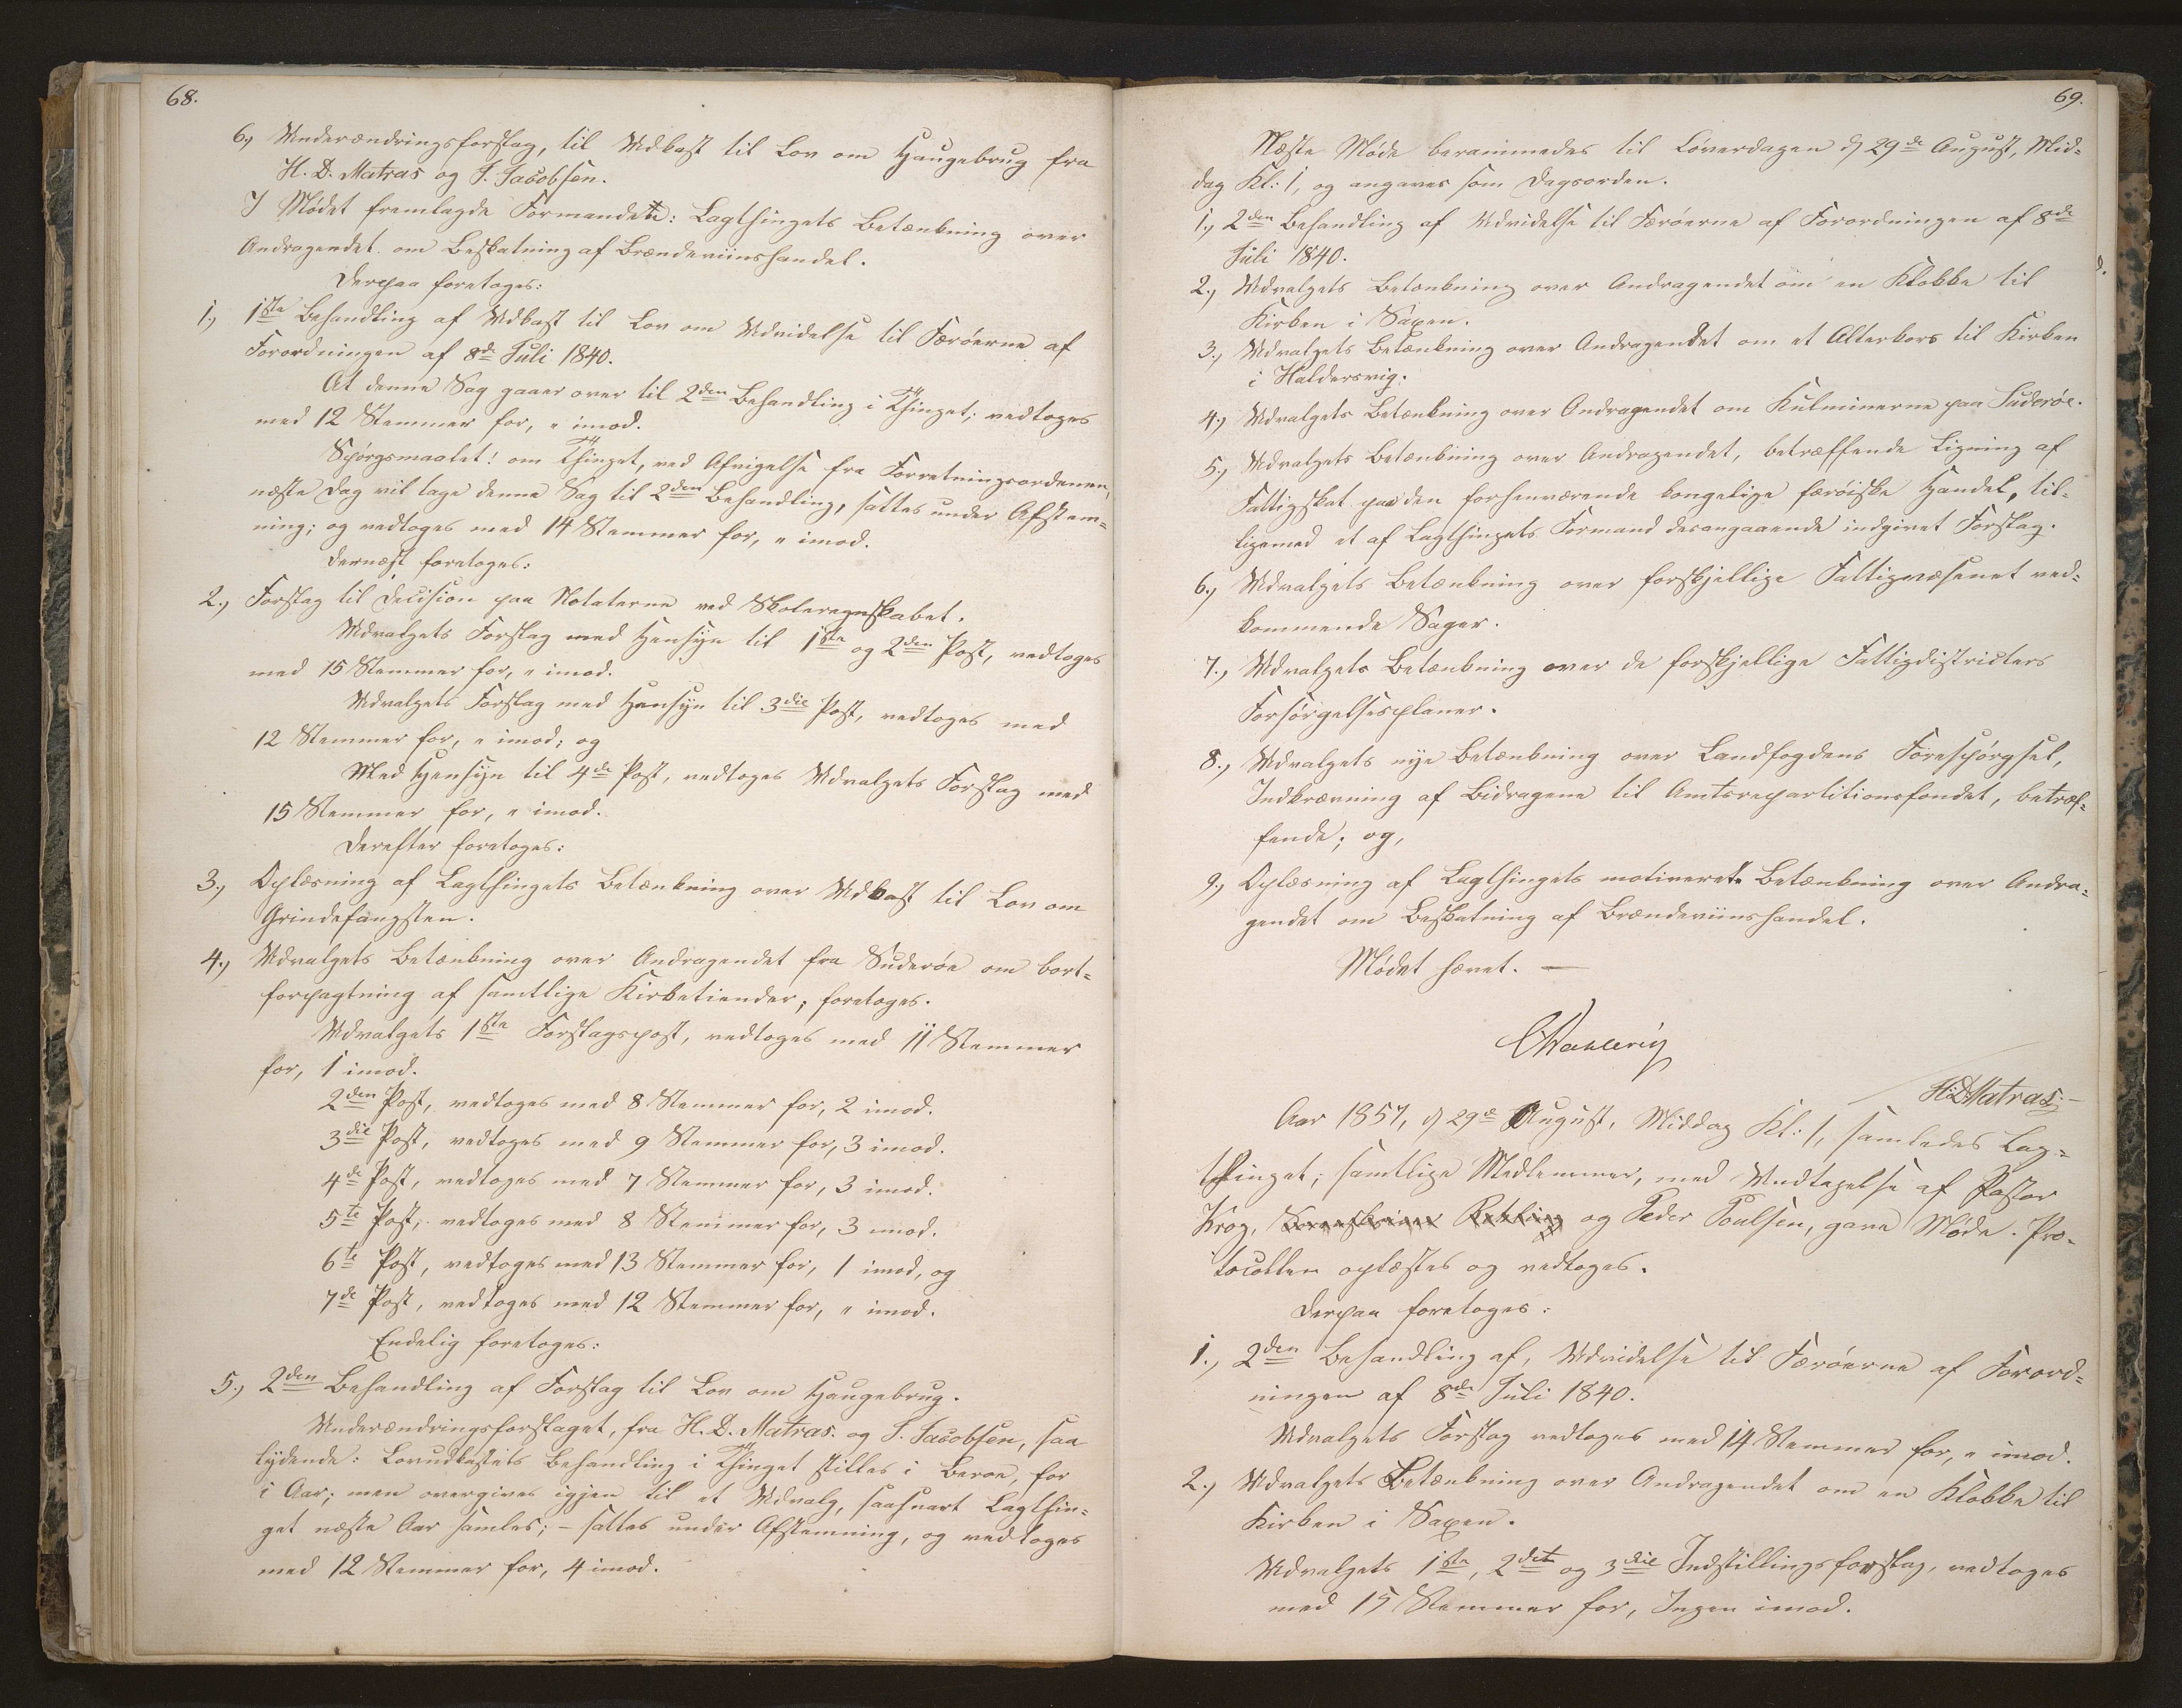 68.
6., Underændringsforslag, til Udkast til Lov om Haugebrug fra
H. D. Matras og J. Jacobsen.
I Mødet fremlagde Formanden: Lagthingets Betænkning over
Andragendet om Beskatning af Brændeviinshandel.
Derpaa foretoges:
1., 1ste Behandling af Udkast til Lov om Udvidelse til Færøerne af
Forordningen af 8de Juli 1840.
At denne Sag gaaer over til 2den Behandling i Thinget; vedtoges
med 12 Stemmer for, " imod.
Spørgsmaalet: om Thinget, ved Afvigelse fra Forretningsordenen,
næste Dag vil tage denne Sag til 2den Behandling, sattes under Afstem=
ning; og vedtoges med 14 Stemmer for, " imod.
Dernæst foretoges:
2., Forslag til Decision paa Notaterne ved Skoleregnskabet.
Udvalgets Forslag med Hensyn til 1ste og 2den Post, vedtoges
med 15 Stemmer for, " imod.
Udvalgets Forslag med Hensyn til 3die Post, vedtoges med
12 Stemmer for, " imod; og
Med Hensyn til 4de Post, vedtoges Udvalgets Forslag med
15 Stemmer for, " imod.
Derefter foretoges:
3., Oplæsning af Lagthingets Betænkning over Udkast til Lov om
Grindefangsten.
4., Udvalgets Betænkning over Andragendet fra Suderøe om bort=
forpagtning af samtlige Kirketiender, foretoges.
Udvalgets 1ste Forslagspost, vedtoges med 11 Stemmer
for, 1 imod.
2den Post, vedtoges med 8 Stemmer for, 2 imod.
3die Post, vedtoges med 9 Stemmer for, 3 imod.
4de Post, vedtoges med 7 Stemmer for, 3 imod.
5te Post, vedtoges med 8 Stemmer for, 3 imod.
6te Post, vedtoges med 13 Stemmer for, 1 imod, og
7de Post, vedtoges med 12 Stemmer for, " imod.
Endelig foretoges:
5., 2den Behandling af Forslag til Lov om Haugebrug.
Underændringsforslaget, fra H. D. Matras og J. Jacobsen, saa
lydende: Lovudkastets Behandling i Thinget stilles i Beroe, for
i Aar; men overgives igjen til et Udvalg, saasnart Lagthin=
get næste Aar samles; – sattes under Afstemning, og vedtoges
med 12 Stemmer for, 4 imod.
69.
Næste Møde berammedes til Løverdagen d 29de August, Mid=
dag Kl: 1, og angaves som Dagsorden.
1., 2den Behandling af Udvidelse til Færøerne af Forordningen af 8de
Juli 1840.
2., Udvalgets Betænkning over Andragendet om en Klokke til
Kirken i Saxen.
3., Udvalgets Betænkning over Andragendet om et Alterkors til Kirken
i Haldersvig.
4., Udvalgets Betænkning over Andragendet om Kulminerne paa Suderøe.
5., Udvalgets Betænkning over Andragendet, betræffende Ligning af
Fattigskat paa den forhenværende kongelige færøiske Handel, til=
ligemed et af Lagthingets Formand desangaaende indgivet Forslag.
6., Udvalgets Betænkning over forskjellige Fattigvæsenet ved=
kommende Sager.
7., Udvalgets Betænkning over de forskjellige Fattigdistricters
Forsørgelsesplaner.
8., Udvalgets nye Betænkning over Landfogdens Forespørgsel,
Indkrævning af Bidragene til Amtsrepartitionsfondet, betræf=
fende; og,
9., Oplæsning af Lagthingets motiverete Betænkning over Andra=
gendet om Beskatning af Brændeviinshandel.
Mødet hævet. —
CDahlerup
H. D. Matras
Aar 1857, d 29de August, Middag Kl: 1, samledes Lag=
thinget; samtlige Medlemmer, med Undtagelse af Pastor
Krog, og Peder Poulsen, gave Møde. Pro=
tocollen oplæstes og vedtoges.
Derpaa foretoges:
1., 2den Behandling af, Udvidelse til Færøerne af Forord=
ningen af 8de Juli 1840.
Udvalgets Forslag vedtoges med 14 Stemmer for, " imod.
2., Udvalgets Betænkning over Andragendet om en Klokke til
Kirken i Saxen.
Udvalgets 1ste, 2det og 3die Indstillingsforslag, vedtoges
med 15 Stemmer for, Ingen imod.